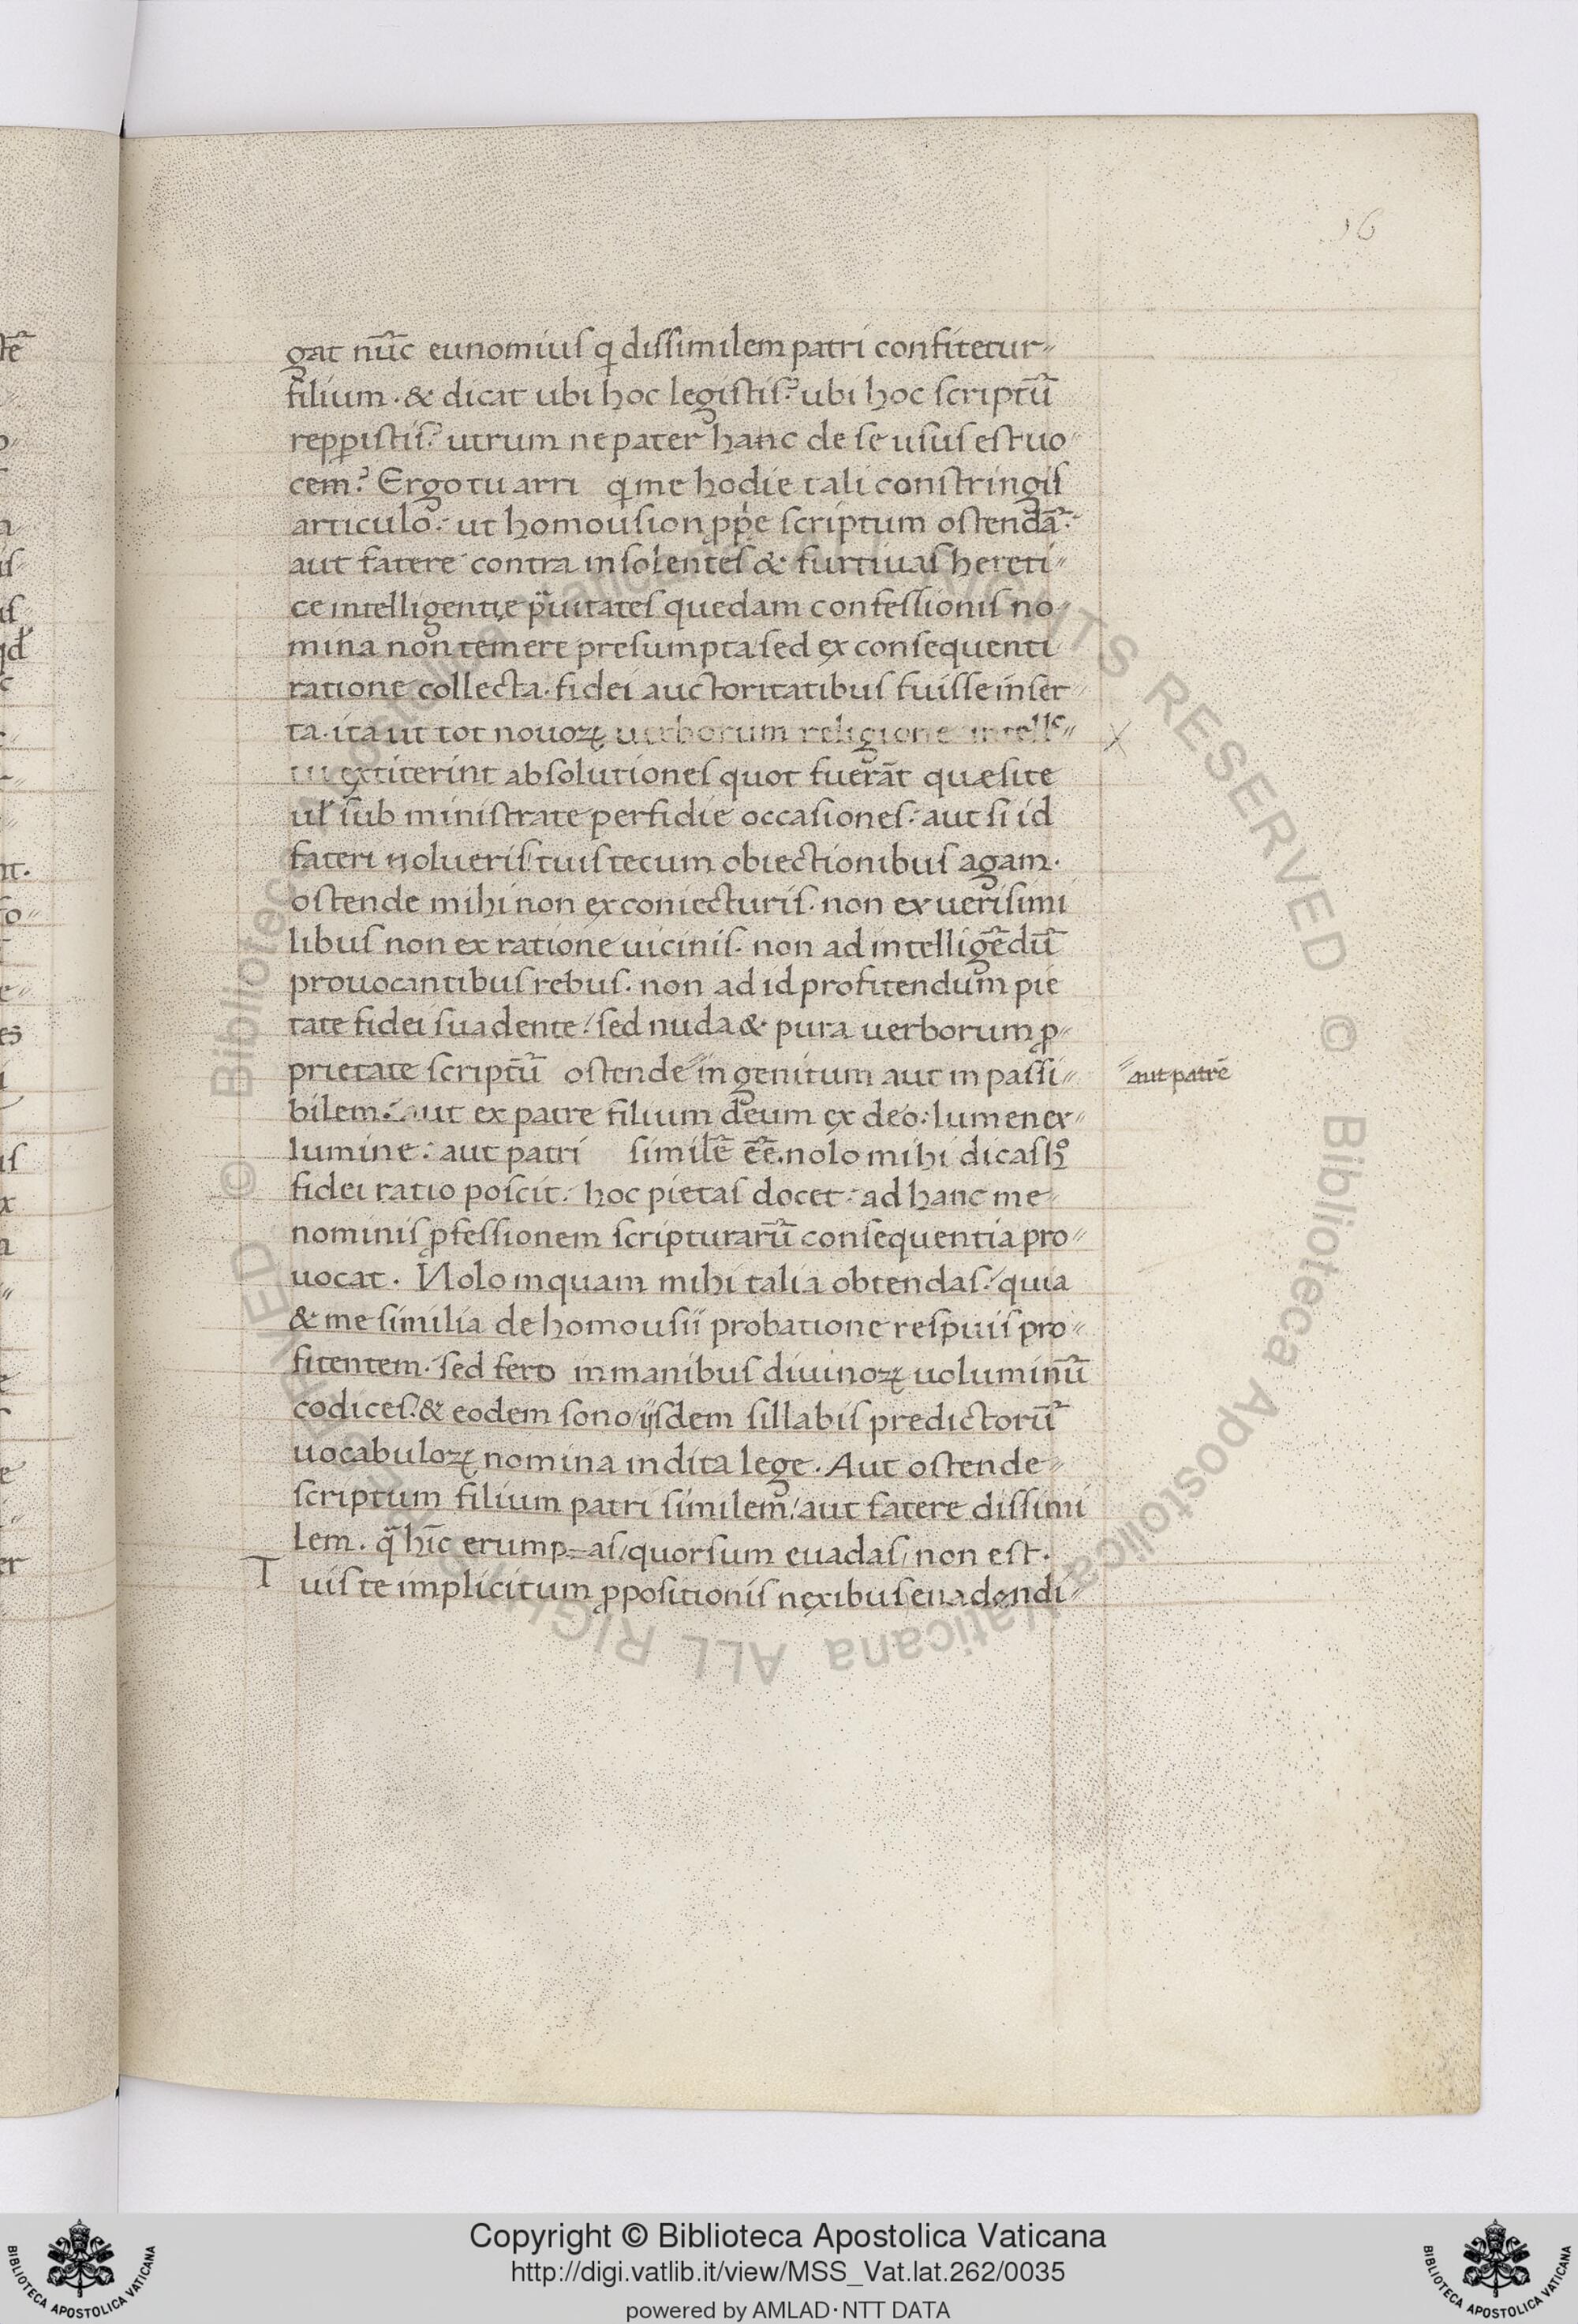 16
gat nūc eunomius q dissimilem patri confitetur⸗
filium · & dicat ubi hoc legistis? ubi hoc scriptū
repꝑistis? utrum ne pater hanc de se usus est uo⸗
cem? Ergo tu arri q me hodie tali constringis
articulo: ut homousion ꝓpͥe scriptum ostendā:
aut fatere contra insolentes & furtiuas hereti⸗
ce intelligentię pͣuitates quedam confessionis no⸗
mina non temere presumpta sed ex consequenti
ratione collecta · fidei auctoritatibus fuisse inser⸗
ta · ita ut tot nouoꝝ uerborum religione intellc⸗
tu extiterint absolutiones quot fuerāt quæsite
ul' sub ministrate perfidie occasiones: aut si id
fateri nolueris: tuis tecum obiectionibus agam ·
ostende mihi non ex coniecturis · non ex uerisimi
libus non ex ratione uicinis · non ad intelligēdū
prouocantibus rebus · non ad id profitendum pie
tate fidei suadente: sed nuda & pura uerborum ꝓ⸗
prietate scriptū ostende in genitum aut in passi⸗
aut patrē
bilem: aut ex patre filium deum ex deo: lumen ex⸗
lumine: aut patri similē eē. nolo mihi dicas hͦ
fidei ratio poscit: hoc pietas docet: ad hanc me
nominis ꝓfessionem scripturarū consequentia pro⸗
uocat · Nolo inquam mihi talia obtendas: quia
& me similia de homousii probatione respuis pro⸗
fitentem · sed fero in manibus diuinoꝝ uoluminū
codices: & eodem sono iisdem sillabis predictorū
uocabuloꝝ nomina indita lege · Aut ostende⸗
scriptum filium patri similem: aut fatere dissimi
lem · qͣ hīc erump⸗as, quorsum euadas, non est ·
Tuis te implicitum ꝓpositionis nexibus euadendi⸗
© Biblioteca Apostolica Vaticana ALL RIGHTS RESERVED © Biblioteca Apostolica Vaticana ALL RIGHTS RESERVED
Copyright © Biblioteca Apostolica Vaticana
http://digi.vatlib.it/view/MSS_Vat.lat.262/0035
powered by AMLAD·NTT DATA
BIBLIOTECA APOSTOLICA VATICANA
BIBLIOTECA APOSTOLICA VATICANA